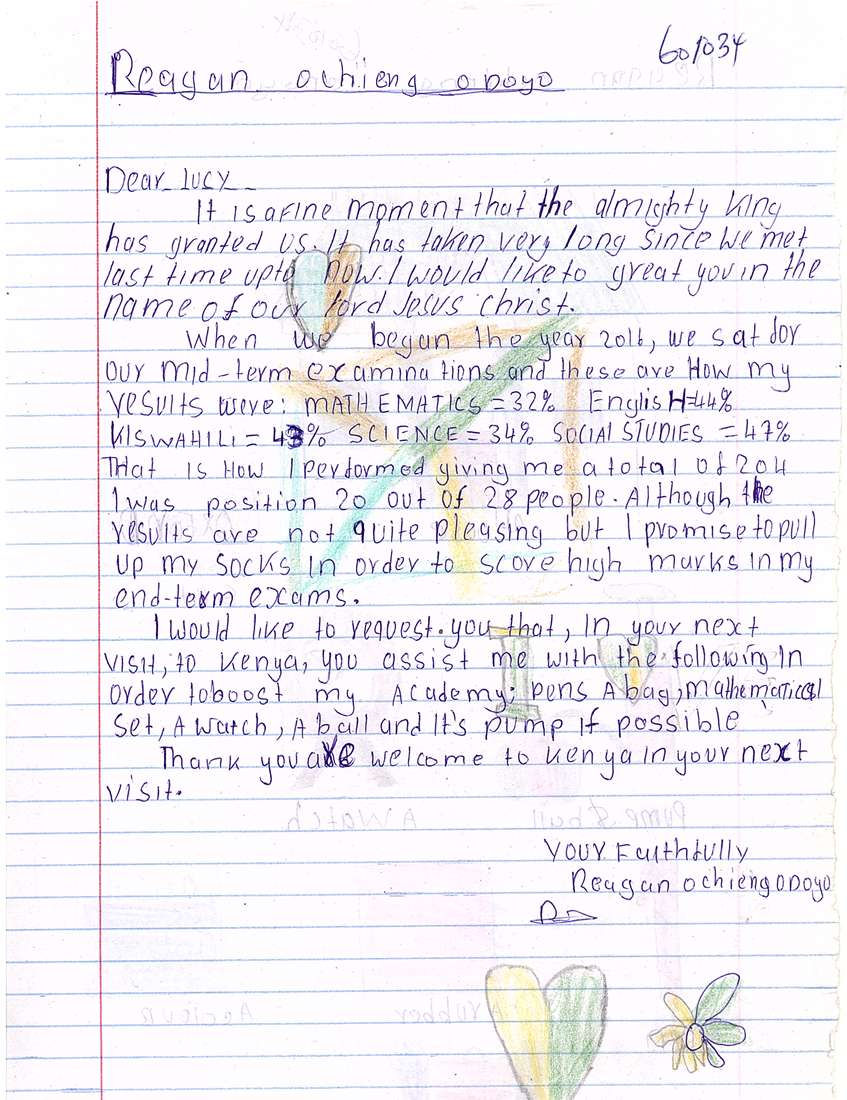 601034
Reagan ochieng oDoyo
Dear lucy
It is a Fine moment that the almighty King
has granted us. It has taken very long since we met
last time upto now. I would like to great you in the
name of our lord Jesus Christ.
When we began the year 2016, we sat for
our mid-term examinations and these are How my
results were: MATHEMATICS = 32% EnglisH=44%
KISWAHILI = 43% SCIENCE = 34% SOCIAL STUDIES = 47%
THat is How I performed giving me a total of 204
I was position 20 out of 28 people. Although the
results are not quite pleasing but I promise to pull
up my socks In order to score high marks in my
end-term exams.
I would like to request. you that, In your next
visit, to Kenya, you assist me with the following In
order toboost my Academy; pens A bag, mathematical
set, A watch, A ball and It's pump If possible
Thank you are welcome to Kenya In your next
visit.
Your Faithfully
Reagan ochieng oDoyo
pump & ball
A watch
A rubber